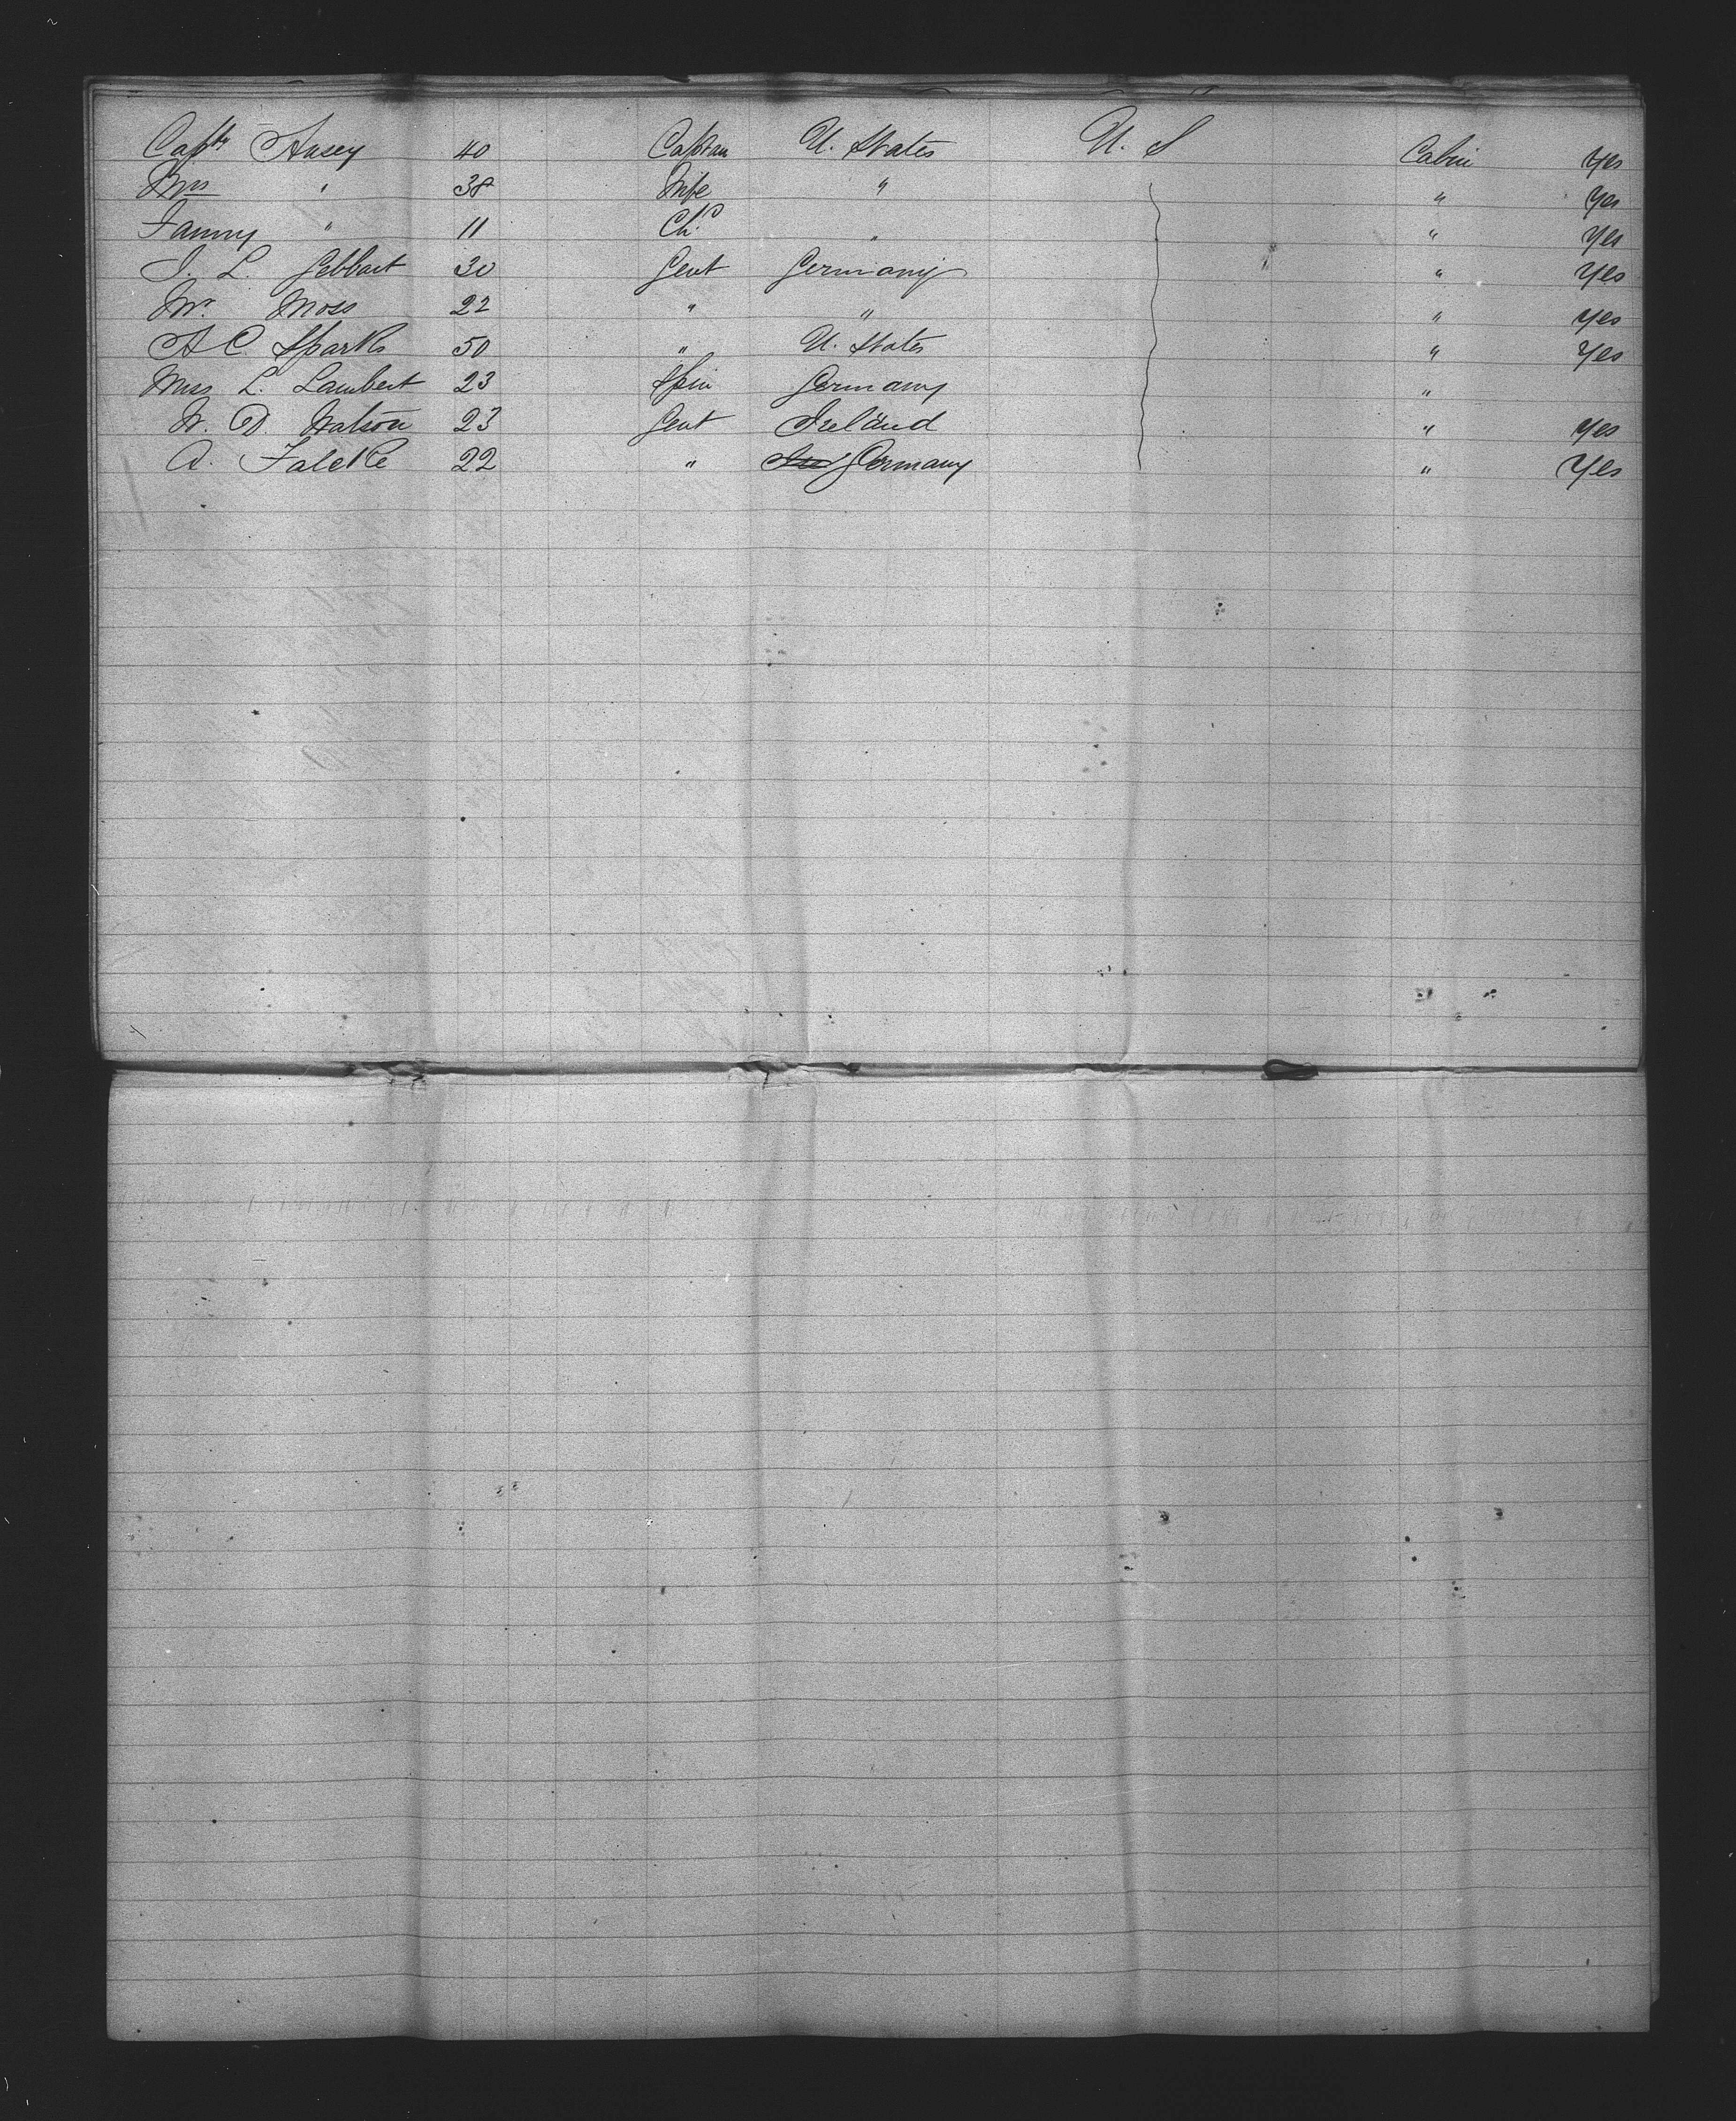 Captn 40 Captain U. States U. S Cabin Yes
Mrs " 38 Wife " " Yes
Fanny " 11 Chd " " Yes
J. L. Gebbart 30 Gent Germany " Yes
Mr. Moss 22 " " " Yes
A C. Sparks 50 " U. States " Yes
Miss L. Lambert 23 Spin Germany "
W. D. Watson 23 Gent Ireland " Yes
A. Falcke 22 " Germany " Yes